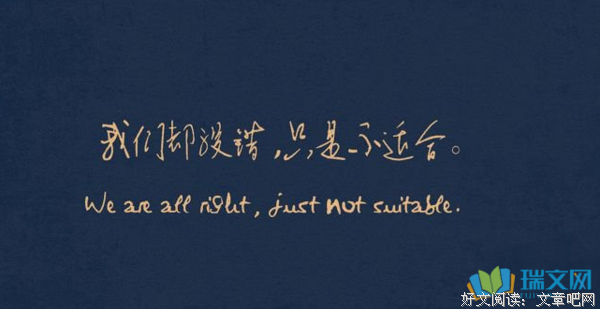 我们却没错，只是不适合。
We are all right, just not suitable.
瑞文网
好文阅读：文章吧网